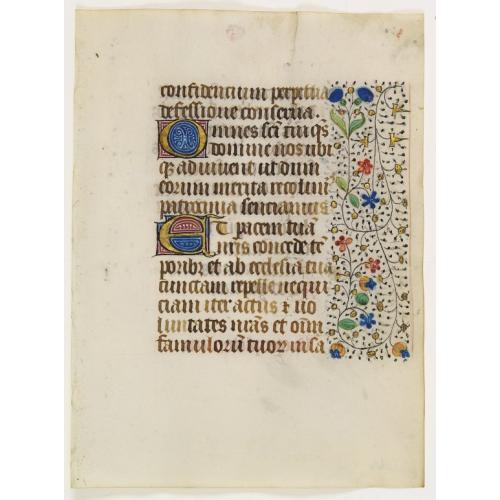 confidencium perpetua
defessione conserua .
Omnes sci tui qs
domine nos ubi
q adiuuent ut dum
eorum merita recolim
patrocinia senciamus
Et pacem tuā
nris concede tē
porib et ab ecclesia tua
cunctam repelle nequi
ciam iter actus ⁊ uo
luntates nras et oīm
famuloru tuor in sa